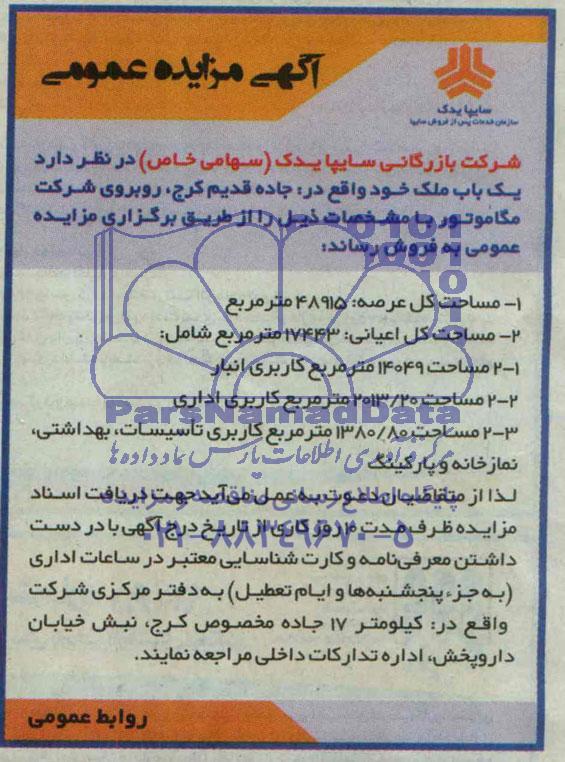 آگهی مزایده عمومی
سایپا یدک
سازمان خدمات پس از فروش سایپا
شرکت بازرگانی سایپا یدک (سهامی خاص) در نظر دارد
یک باب ملک خود واقع در: جاده قدیم کرج، روبروی شرکت
مگاموتور با مشخصات ذیل را از طریق برگزاری مزایده
عمومی به فروش رساند:
۱- مساحت کل عرصه: ۴۸۹۱۵ مترمربع
۲- مساحت کل اعیانی: ۱۷۴۴۳ مترمربع شامل:
۲-۱ مساحت ۱۴۰۴۹ مترمربع کاربری انبار
۲-۲ مساحت ۲۰۱۳/۲۰ مترمربع کاربری اداری
ParsNamadData
۲-۳ مساحت ۱۳۸۰/۸۰ مترمربع کاربری تأسیسات، بهداشتی،
مرکز فرآوری اطلاعات پارس نماد داده ها
نمازخانه و پارکینگ
لذا از متقاضیان دعوت به عمل می‌آید جهت دریافت اسناد
پایگاه اطلاع رسانی
مزایده ظرف مدت ۴ روز کاری از تاریخ درج آگهی با در دست
۰۲۱-۸۸۳۴۹۶۷۰-۵
داشتن معرفی‌نامه و کارت شناسایی معتبر در ساعات اداری
(به جزء پنجشنبه‌ها و ایام تعطیل) به دفتر مرکزی شرکت
واقع در: کیلومتر ۱۷ جاده مخصوص کرج، نبش خیابان
داروپخش، اداره تدارکات داخلی مراجعه نمایند.
روابط عمومی